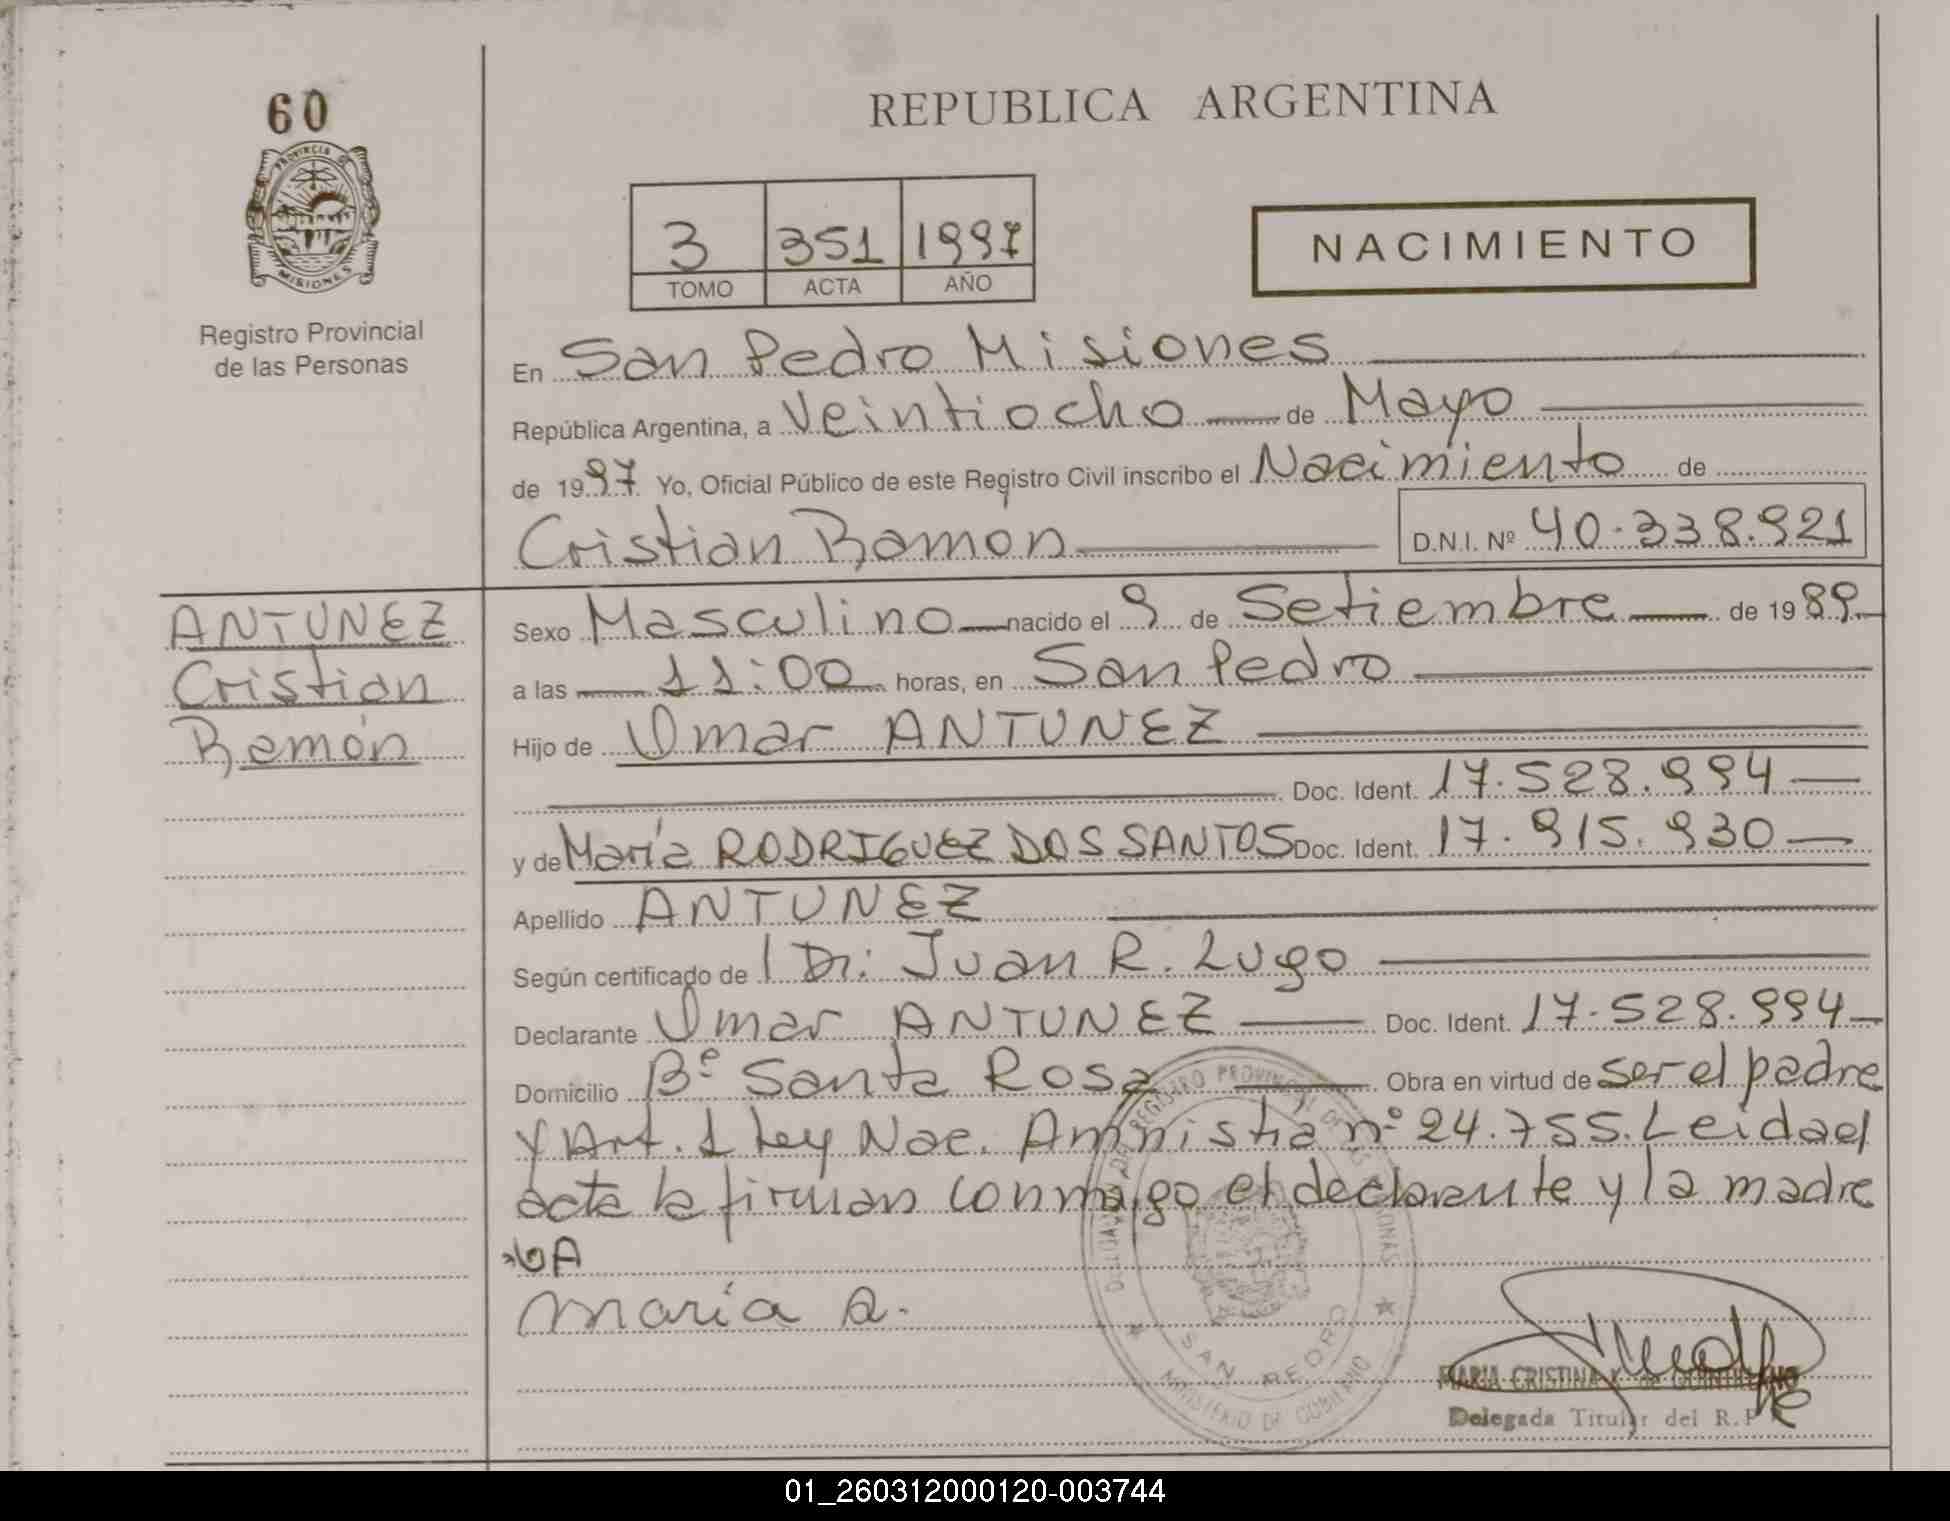 60
PROVINCIA DE
MISIONES
Registro Provincial
de las Personas
REPUBLICA ARGENTINA
3 351 1997
TOMO ACTA AÑO
NACIMIENTO
En San Pedro Misiones
República Argentina, a Veintiocho de Mayo
de 1997 Yo, Oficial Público de este Registro Civil inscribo el Nacimiento de
Cristian Ramon D.N.I. Nº 40.338.921
ANTUNEZ
Cristian
Ramón
Sexo Masculino nacido el 9 de Setiembre de 1989
a las 11:00 horas, en San Pedro
Hijo de Omar ANTUNEZ
Doc. Ident. 17.528.994
y de María RODRIGUEZ DOS SANTOS Doc. Ident. 17.915.930
Apellido ANTUNEZ
Según certificado de Dr. Juan R. Lugo
Declarante Omar ANTUNEZ Doc. Ident. 17.528.994
Domicilio Bº Santa Rosa Obra en virtud de ser el padre
y Art. 1 Ley Nac. Amnistia nº 24.755. Leida el
acta la firman conmigo el declarante y la madre
OA
maría a.
REGISTRO PROVINCIAL DE LAS PERSONAS
SAN PEDRO
MINISTERIO DE GOBIERNO
MARIA CRISTINA K. de
Delegada Titular del R.P.P.
01_260312000120-003744